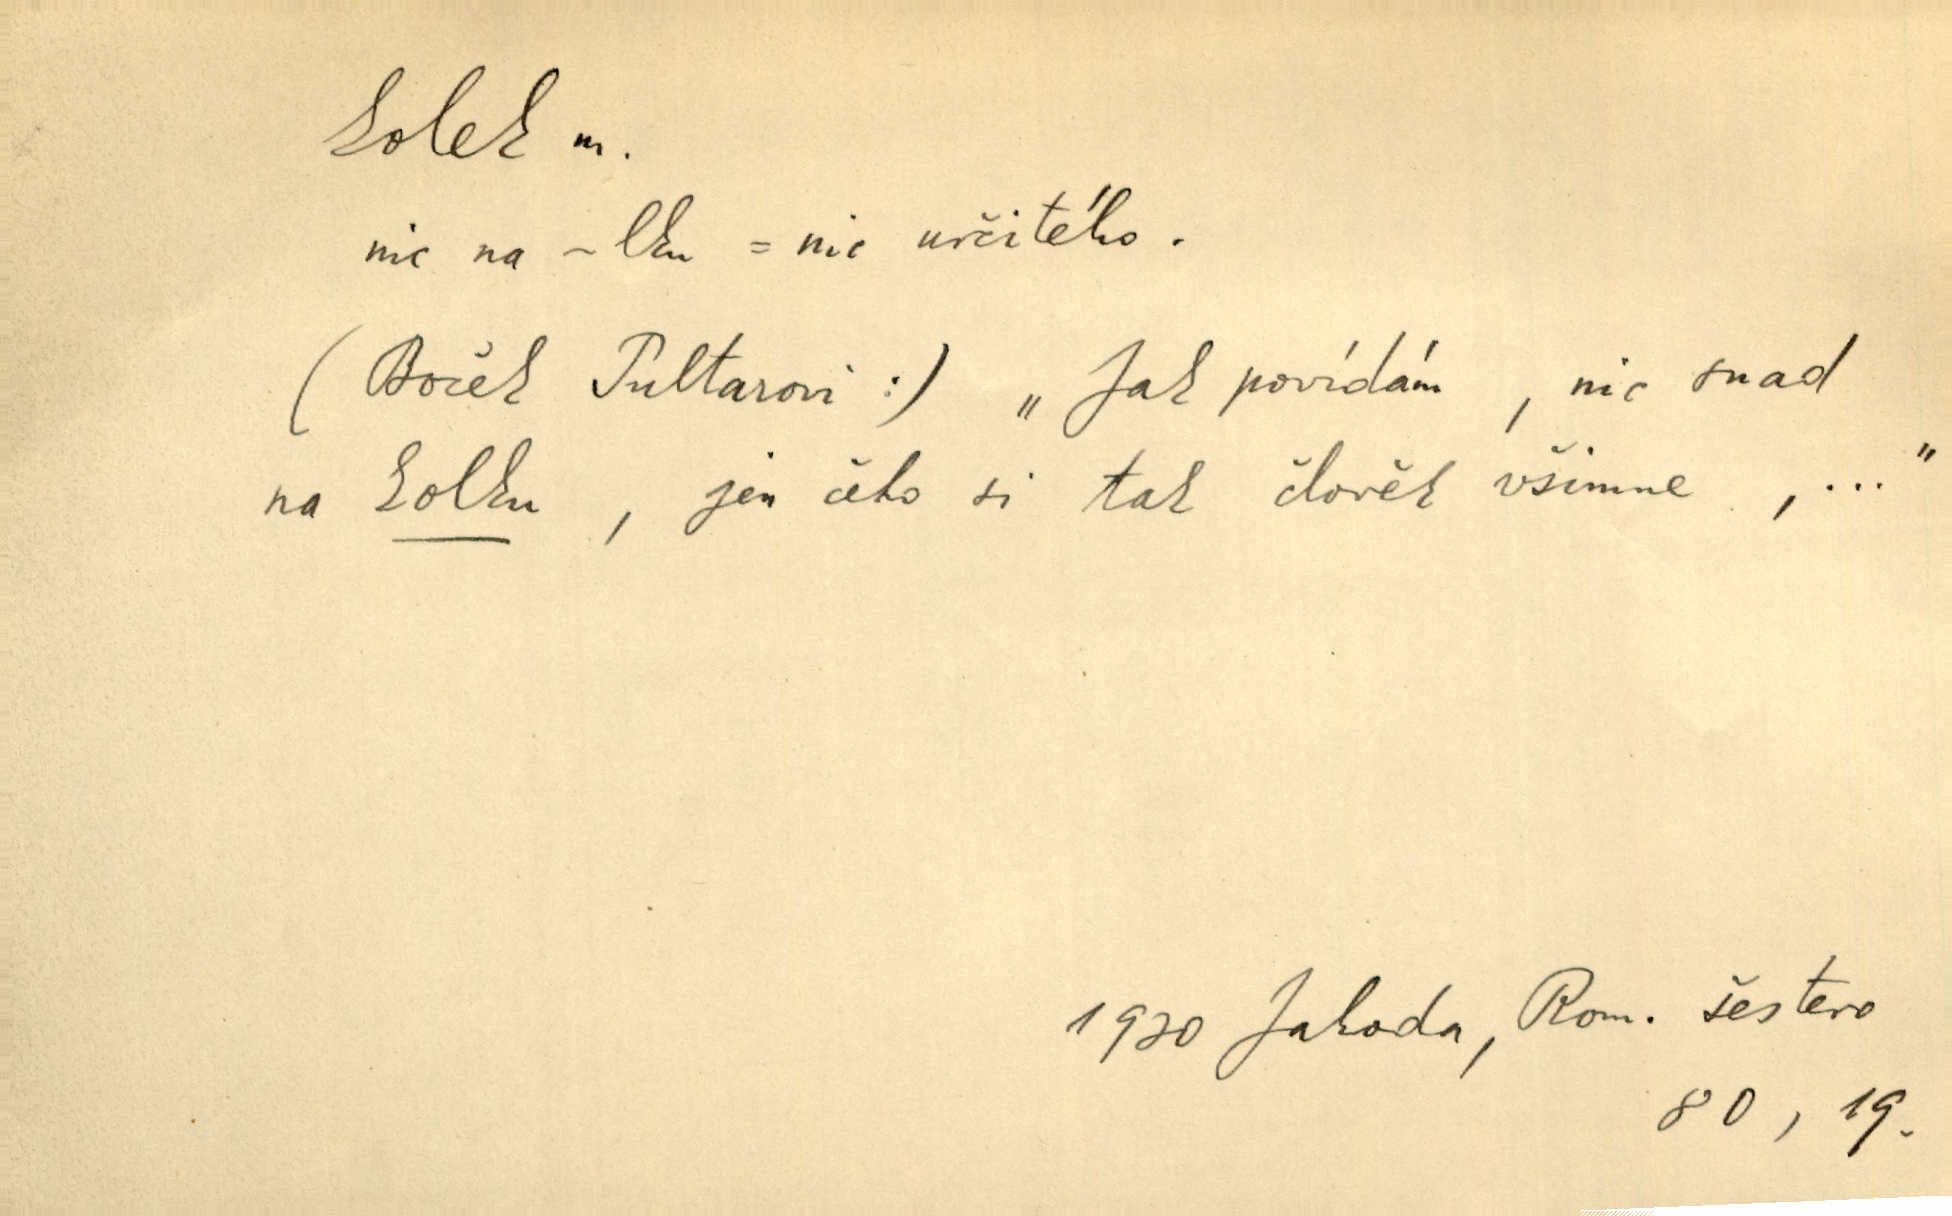 kolek m.
nic na ~lku = nic určitého.
(Boček Pultarovi:) „Jak povídám, nic snad
na kolku, jen čeho si tak člověk všimne, ..."
1930 Jahoda, Rom. šestero
80, 19.